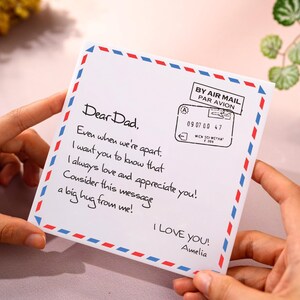 BY AIR MAIL
PAR AVION
09 07 60 47
Dear Dad,
Even when we're apart.
I want you to know that
I always love and appreciate you!
Consider this message
a big hug from me!
I LOVE YOU!
Amelia